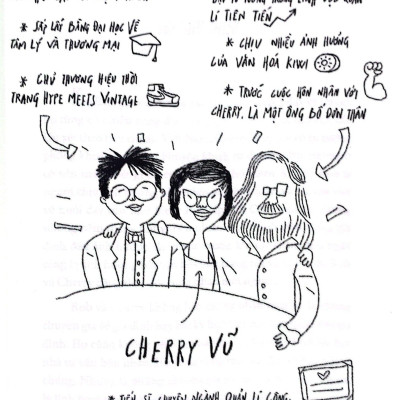 * SẮP LẤY BẰNG ĐẠI HỌC VỀ
TÂM LÝ VÀ THƯƠNG MẠI
* CHỦ THƯƠNG HIỆU THỜI
TRANG HYPE MEETS VINTAGE
LÍ TIÊN TIẾN
* CHỊU NHIỀU ẢNH HƯỞNG
CỦA VĂN HOÁ KIWI
* TRƯỚC CUỘC HÔN NHÂN VỚI
CHERRY, LÀ MỘT ÔNG BỐ ĐƠN THÂN
CHERRY VŨ
* TIẾN SĨ CHUYÊN NGÀNH QUẢN LÍ CÔNG,